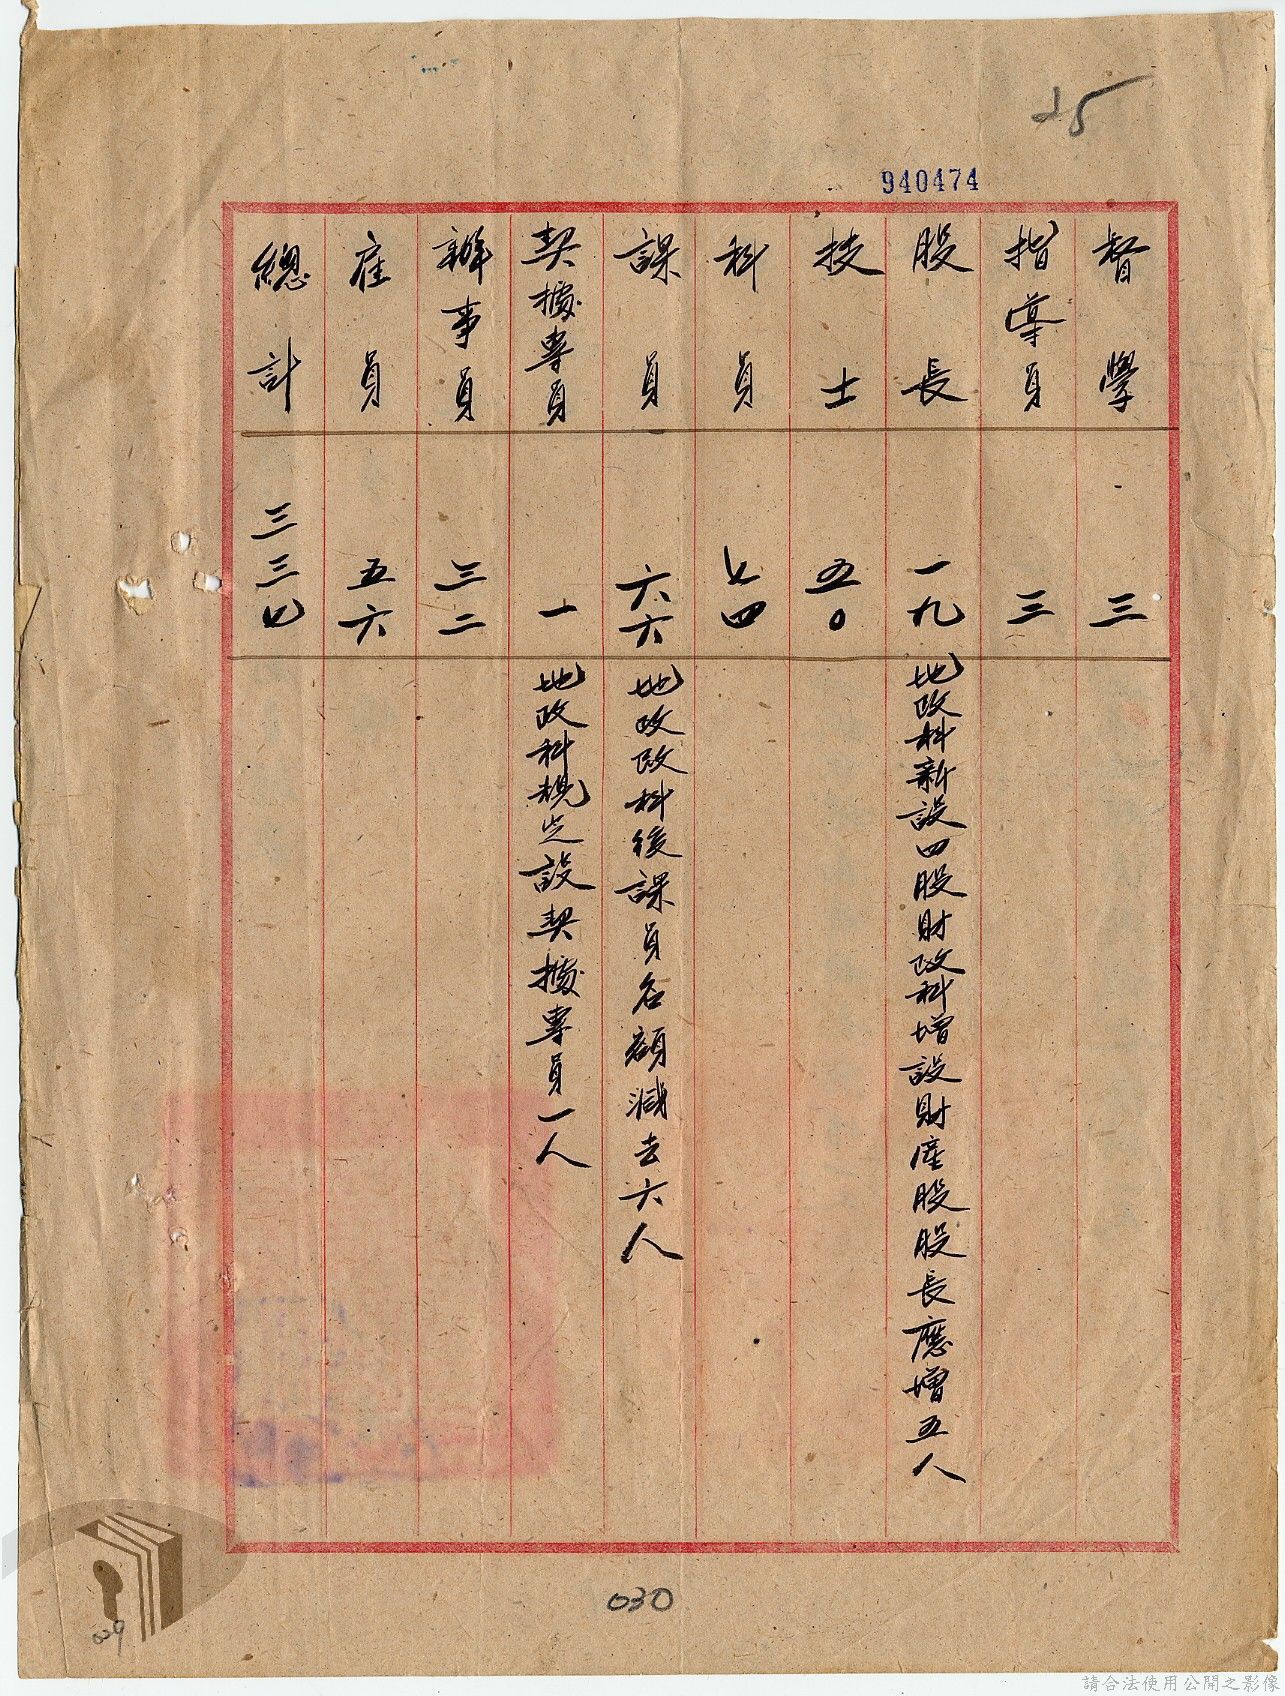 25
940474
督學 三
指導員 三
股長 一九 地政科新設四股財政科增設財產股股長應增五人
技士 五〇
科員 七四
課員 六六 地政改科後課員名額減去六人
契據專員 一 地政科規定設契據專員一人
辦事員 三二
雇員 五六
總計 三三七
030
029
請合法使用公開之影像